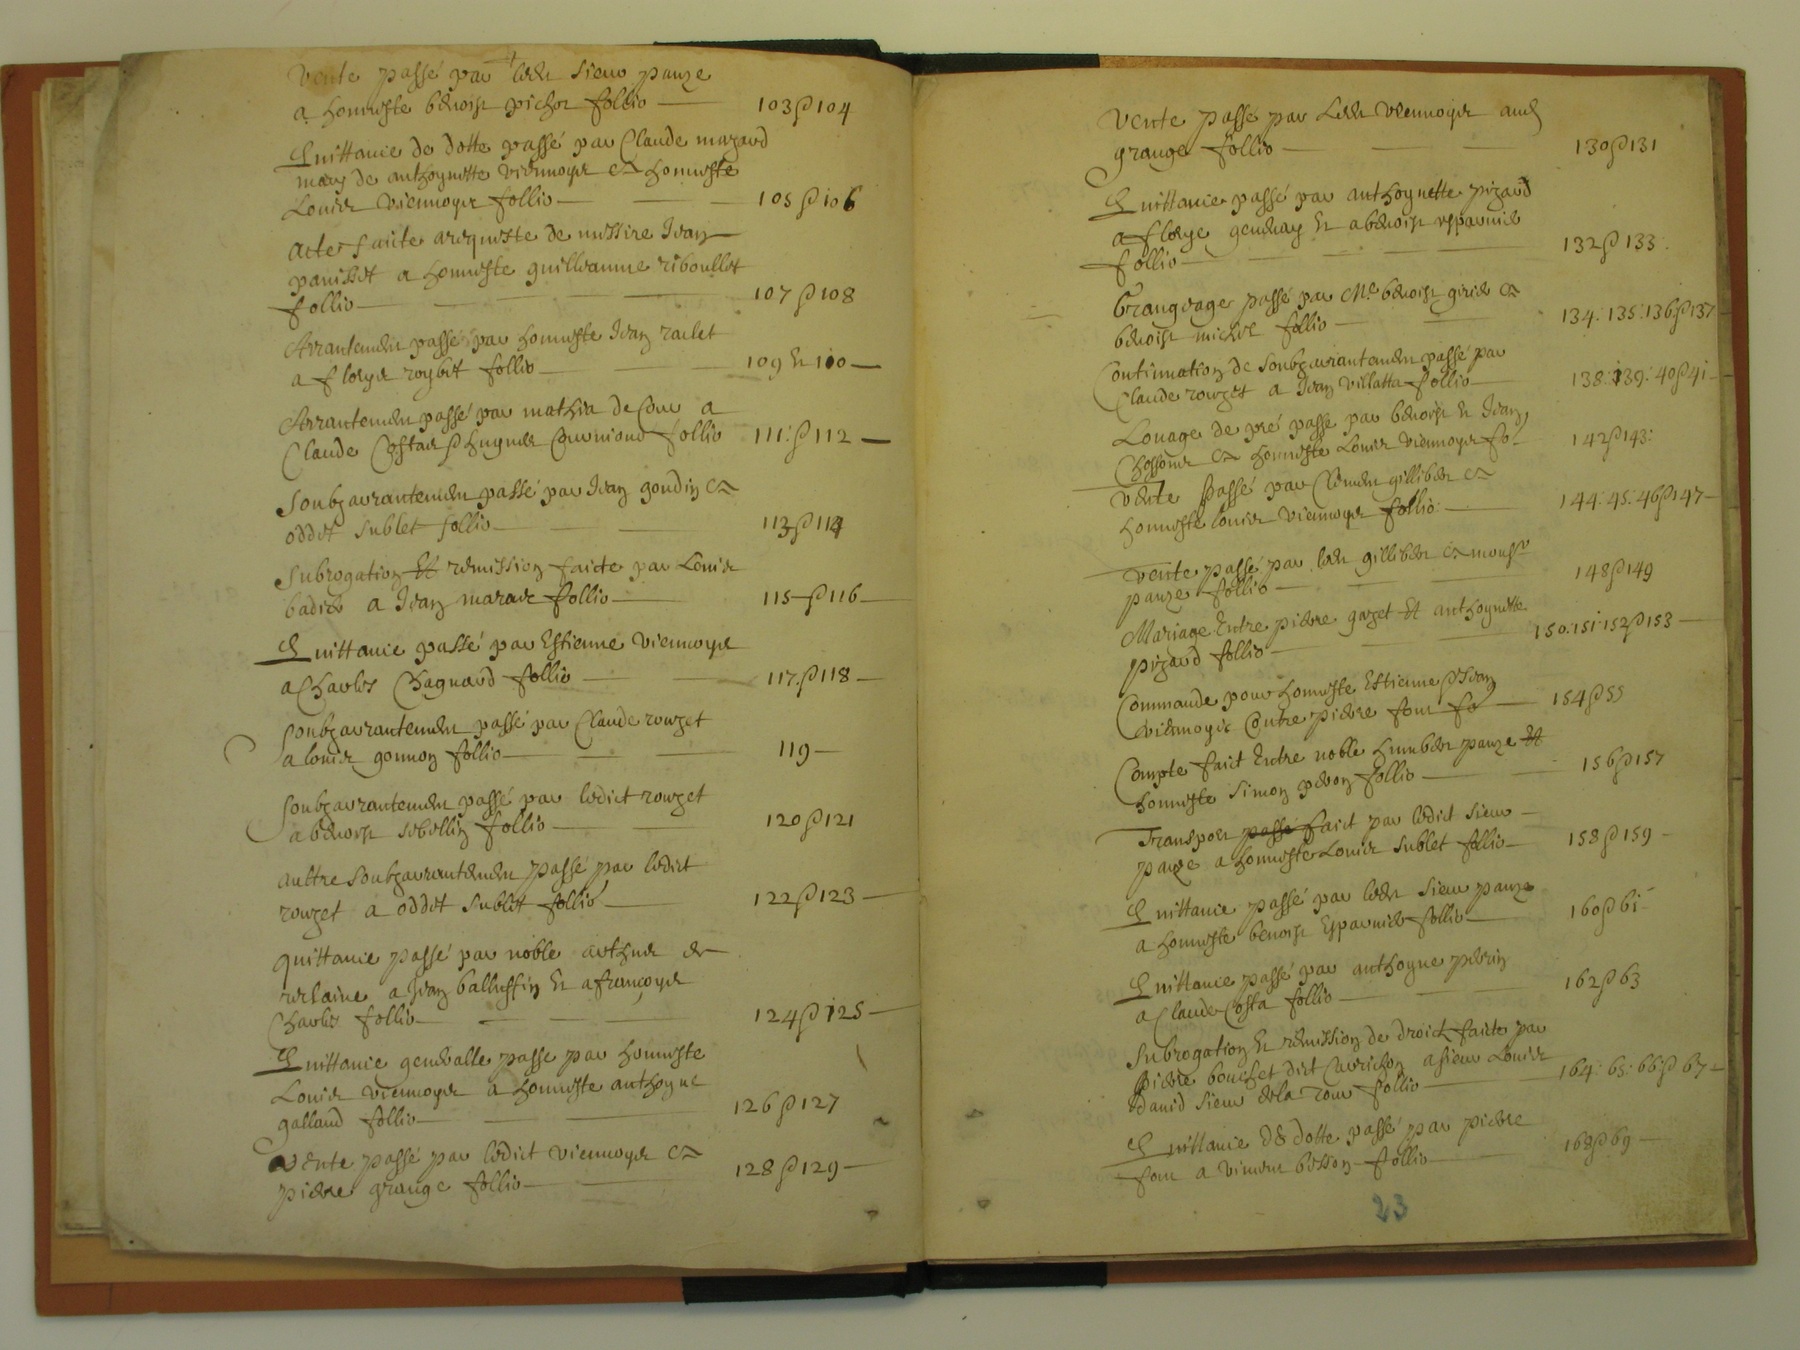 Vente passé par ledt sieur panze
a honneste benoist pichot follio — 103 & 104
Quittance de dotte passé par Claude mazard
mary de anthoynette viennoys et honneste
Louis viennoys follio — 105 & 106
Acte faicte a requeste de messire Jean
panisset a honneste guilleaume riboullet
follio — 107 & 108
Arrantement passé par honneste Jean raclet
a floeys roybet follio — 109 et 110 —
Arrantement passé par mathia de Cour a
Claude Costaz & hugues follio 111: & 112 —
Soubzarrantement passé par Jean goudin et
oddet sublet follio — 113 & 114
Subrogation et remission faicte par Louis
badier a Jean follio — 115 — & 116 —
Quittance passé par Estienne Viennoys
a Charles Chagnard follio — 117 & 118 —
Soubzarrantement passé par Claude rouzet
a Louis gonnon follio — 119 —
Soubzarrantement passé par ledict rouzet
a benoist sebellin follio — 120 & 121
aultre soubzarrantement passé par ledict
rouzet a oddet sublet follio — 122 & 123 —
quittance passé par noble arthur de
a Jean ballustin et a françoys
Charles follio — 124 & 125 —
Quittance generalle passe par honneste
Louis viennoys a honneste anthoyne
galland follio — 126 & 127
Vente passé par ledict viennoys et
pierre grange follio — 128 & 129 —
Vente passé par Ledt viennoys aud
grange follio — 130 & 131
Quittance passé par anthoynette pizard
a floeys gendray et a benoist esparnier
follio — 132 & 133:
passé par Me benoist girier et
benoist michel follio — 134: 135: 136 & 137
Continuation de Soubzarrantement passé par
Claude rouzet a Jean villatta follio — 138: 139: 40 & 41 —
Louage de pré passé par benoist et Jean
Chossonet et honneste Louis viennoys fo — 142 & 143:
Vente passé par Clement gilliber et
honneste louis viennoys follio: — 144: 45: 46 & 147 —
Vente passé par ledt gilliber et monsr
panze follio — 148 & 149
Mariage Entre pierre gazet et anthoynette
pizard follio — 150: 151: 152 & 153 —
Commande pour honneste Estienne & Jean
viennoys Contre pierre four fo — 154 & 55
Compte faict Entre noble humbert panze et
honneste Simon peron follio — 156 & 157
Transport passé faict par ledict Sieur —
panze a honneste Louis sublet follio — 158 & 159 —
Quittance passé par ledt Sieur panze
a honneste benoist Esparnier follio — 160 & 61
Quittance passé par anthoyne perrin
a Claude Costa follio — 162 & 63
Subrogation et remission de droict faicte par
pierre bouchet dict Curichon a sieur Louis
david sieur de la Tour follio — 164: 65: 66 & 67 —
Quittance de dotte passé par pierre
four a vincent besson follio — 168 & 69 —
23